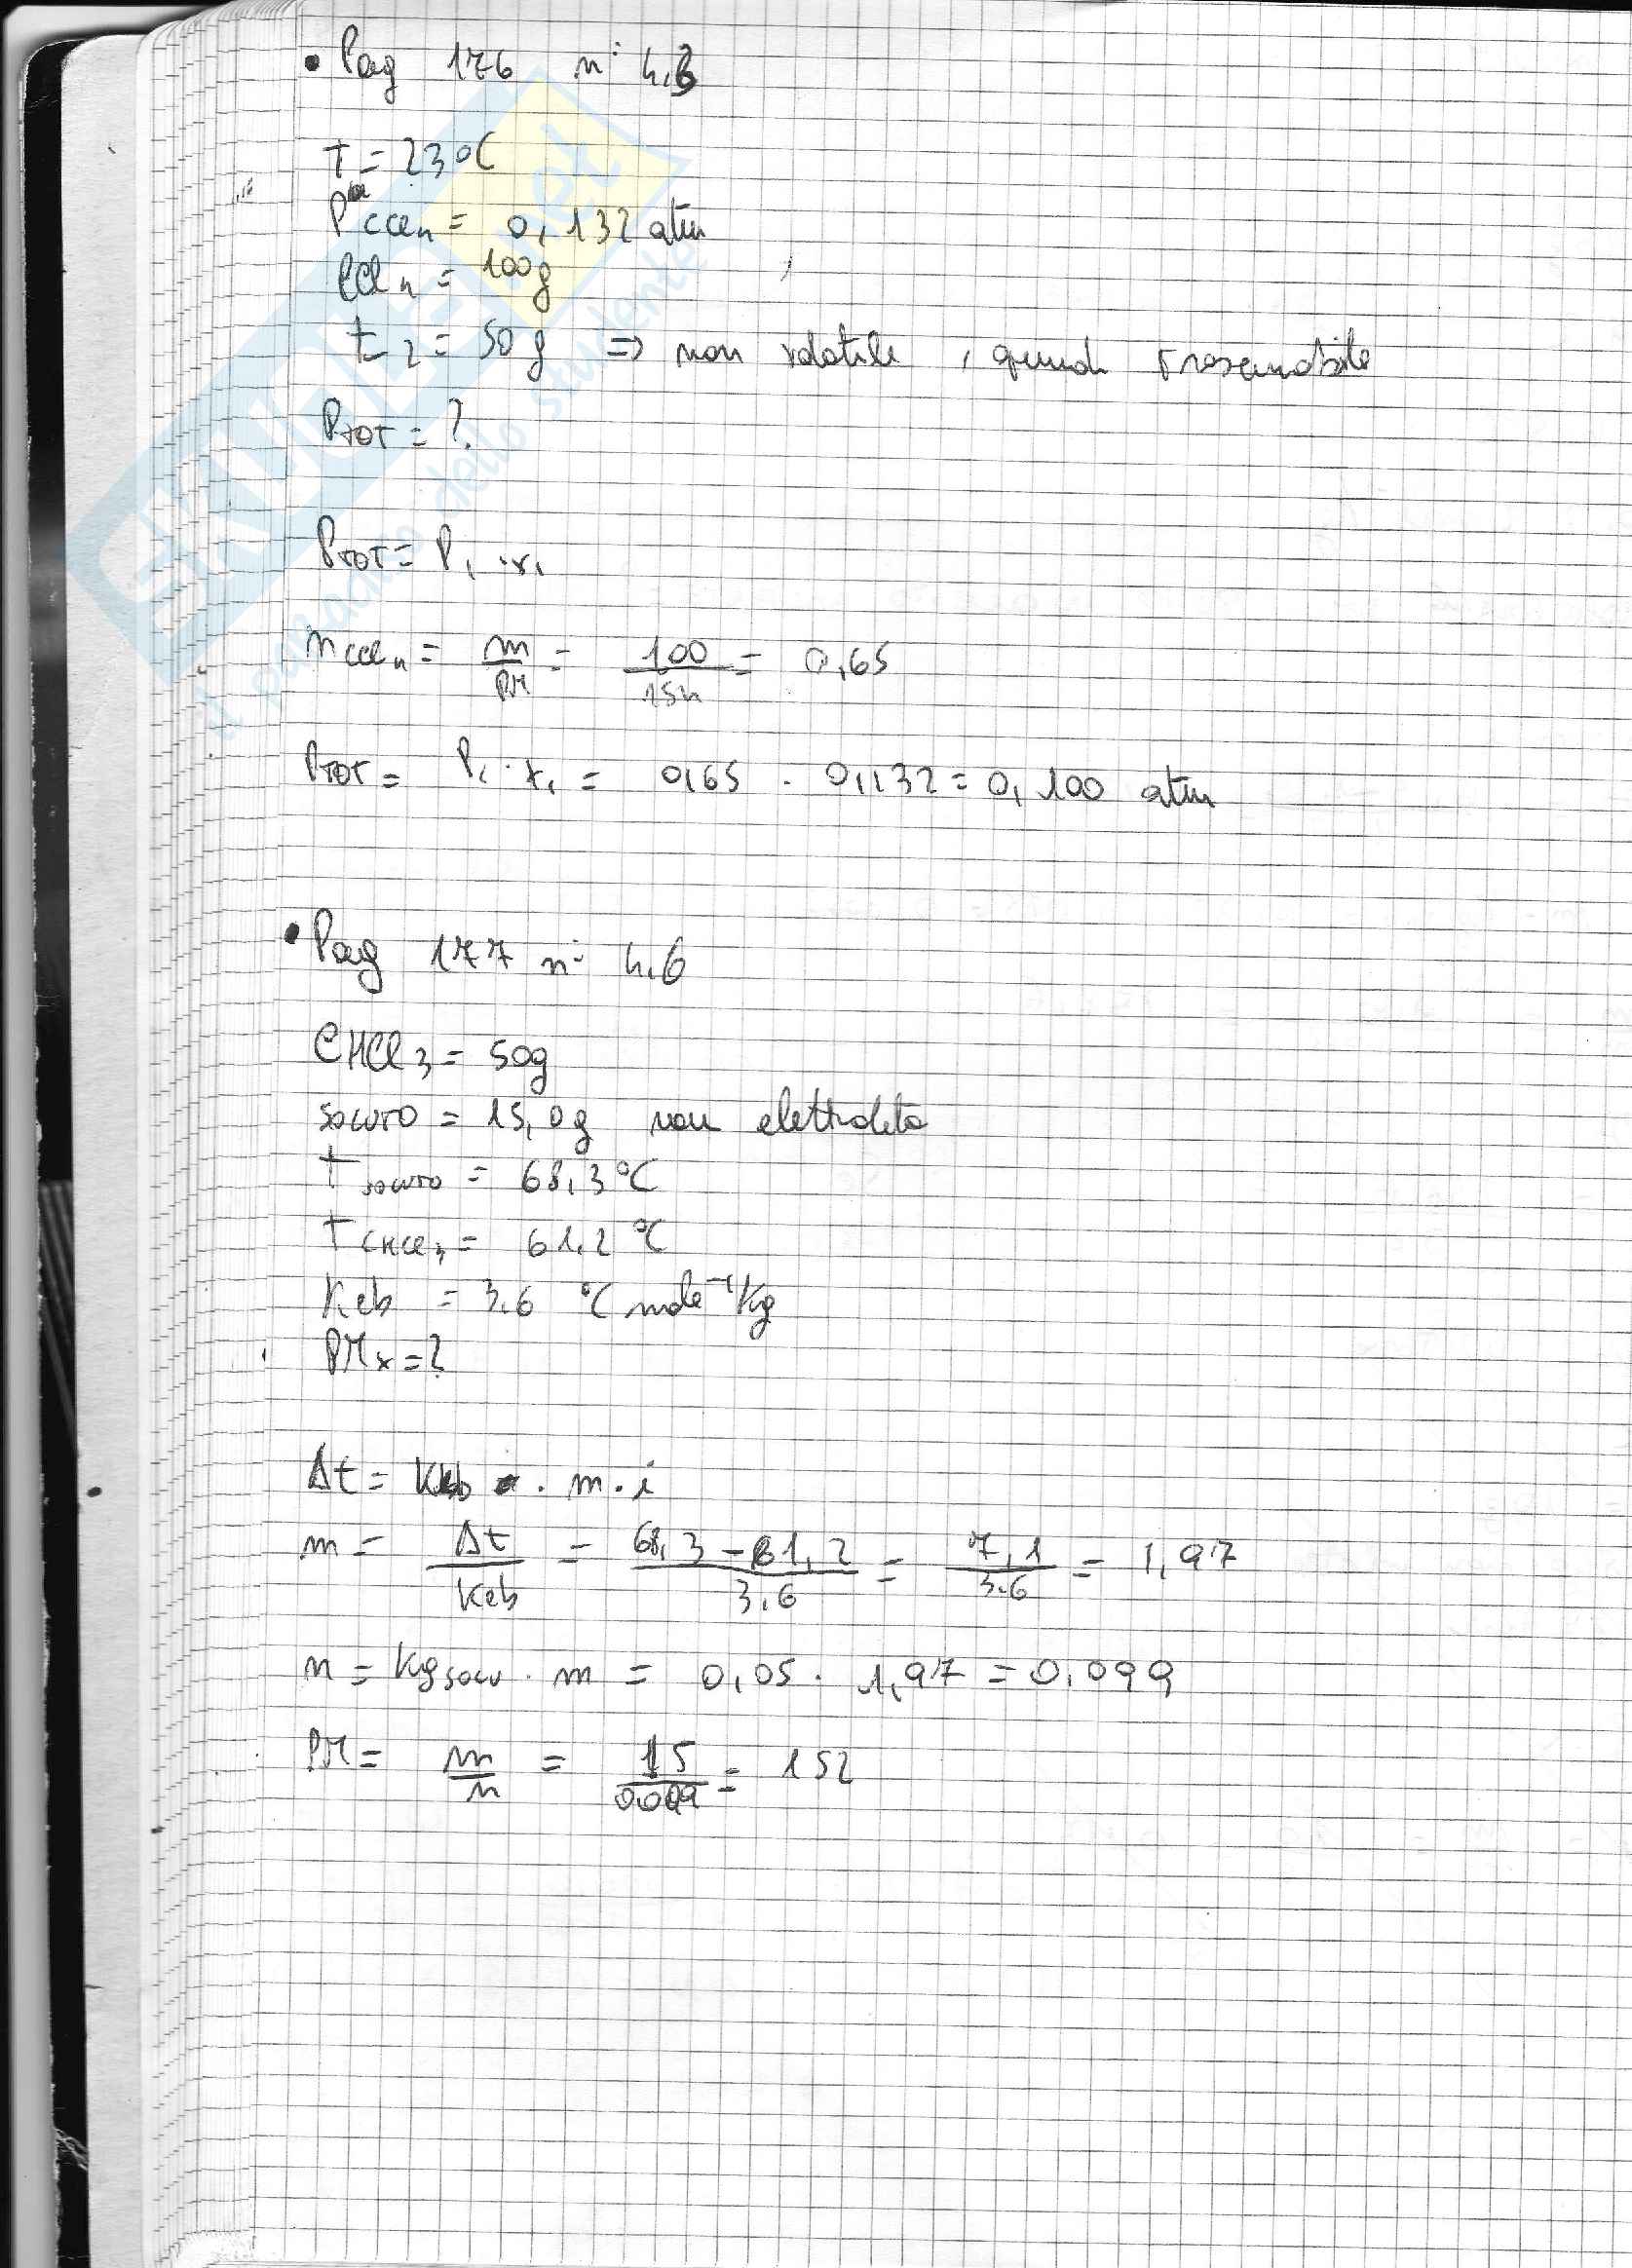 • Pag 176 n° 4.3
T = 23°C
P CCl4 = 0,132 atm
CCl4 = 100g
I2 = 50g => non volatile, quindi trascurabile
PTOT = ?
PTOT = P1 · x1
nCCl4 = m/PM = 100/154 = 0,65
PTOT = P1 · x1 = 0,65 · 0,132 = 0,100 atm
• Pag 177 n° 4.6
CHCl3 = 50g
soluto = 15,0g non elettrolita
t soluto = 68,3°C
t CHCl3 = 61,2 °C
Keb = 3.6 °C mole⁻¹ Kg
PMx = ?
Δt = Keb · m · i
m = Δt/Keb = 68,3 - 61,2/3,6 = 7,1/3.6 = 1,97
n = Kg solv · m = 0,05 · 1,97 = 0,099
PM = m/n = 15/0,099 = 152
SKUOLA.net
il paradiso dello studente